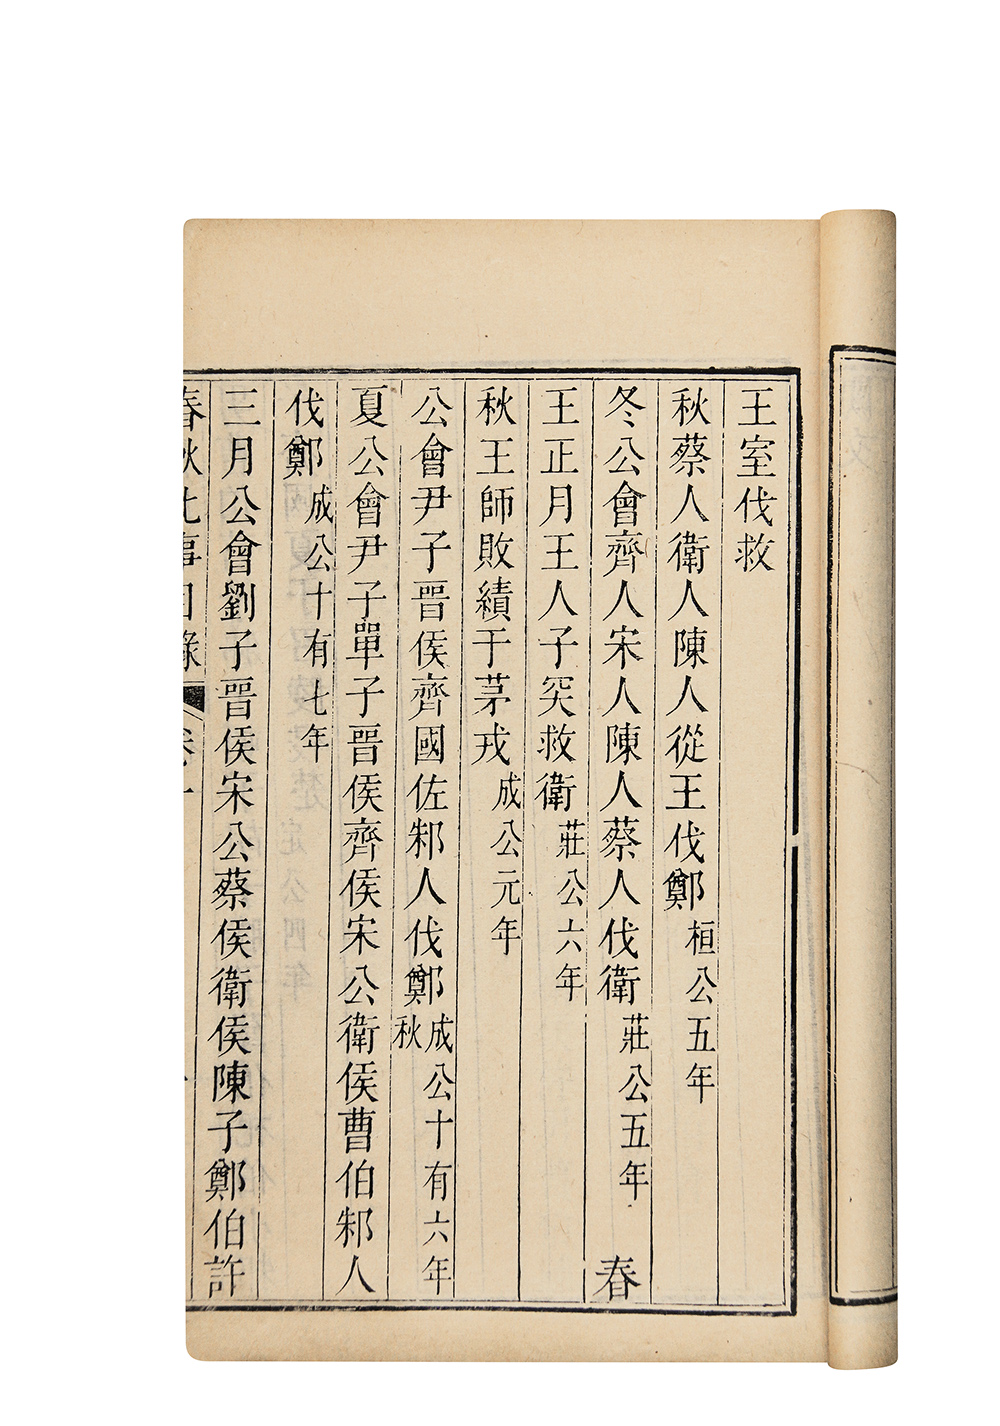 王室伐救
秋蔡人衛人陳人從王伐鄭桓公五年
冬公會齊人宋人陳人蔡人伐衛莊公五年 春
王正月王人子突救衛莊公六年
秋王師敗績于茅戎成公元年
公會尹子晉侯齊國佐邾人伐鄭成公十有六年秋
夏公會尹子單子晉侯齊侯宋公衛侯曹伯邾人
伐鄭成公十有七年
三月公會劉子晉侯宋公蔡侯衛侯陳子鄭伯許
春秋比事目錄 卷一